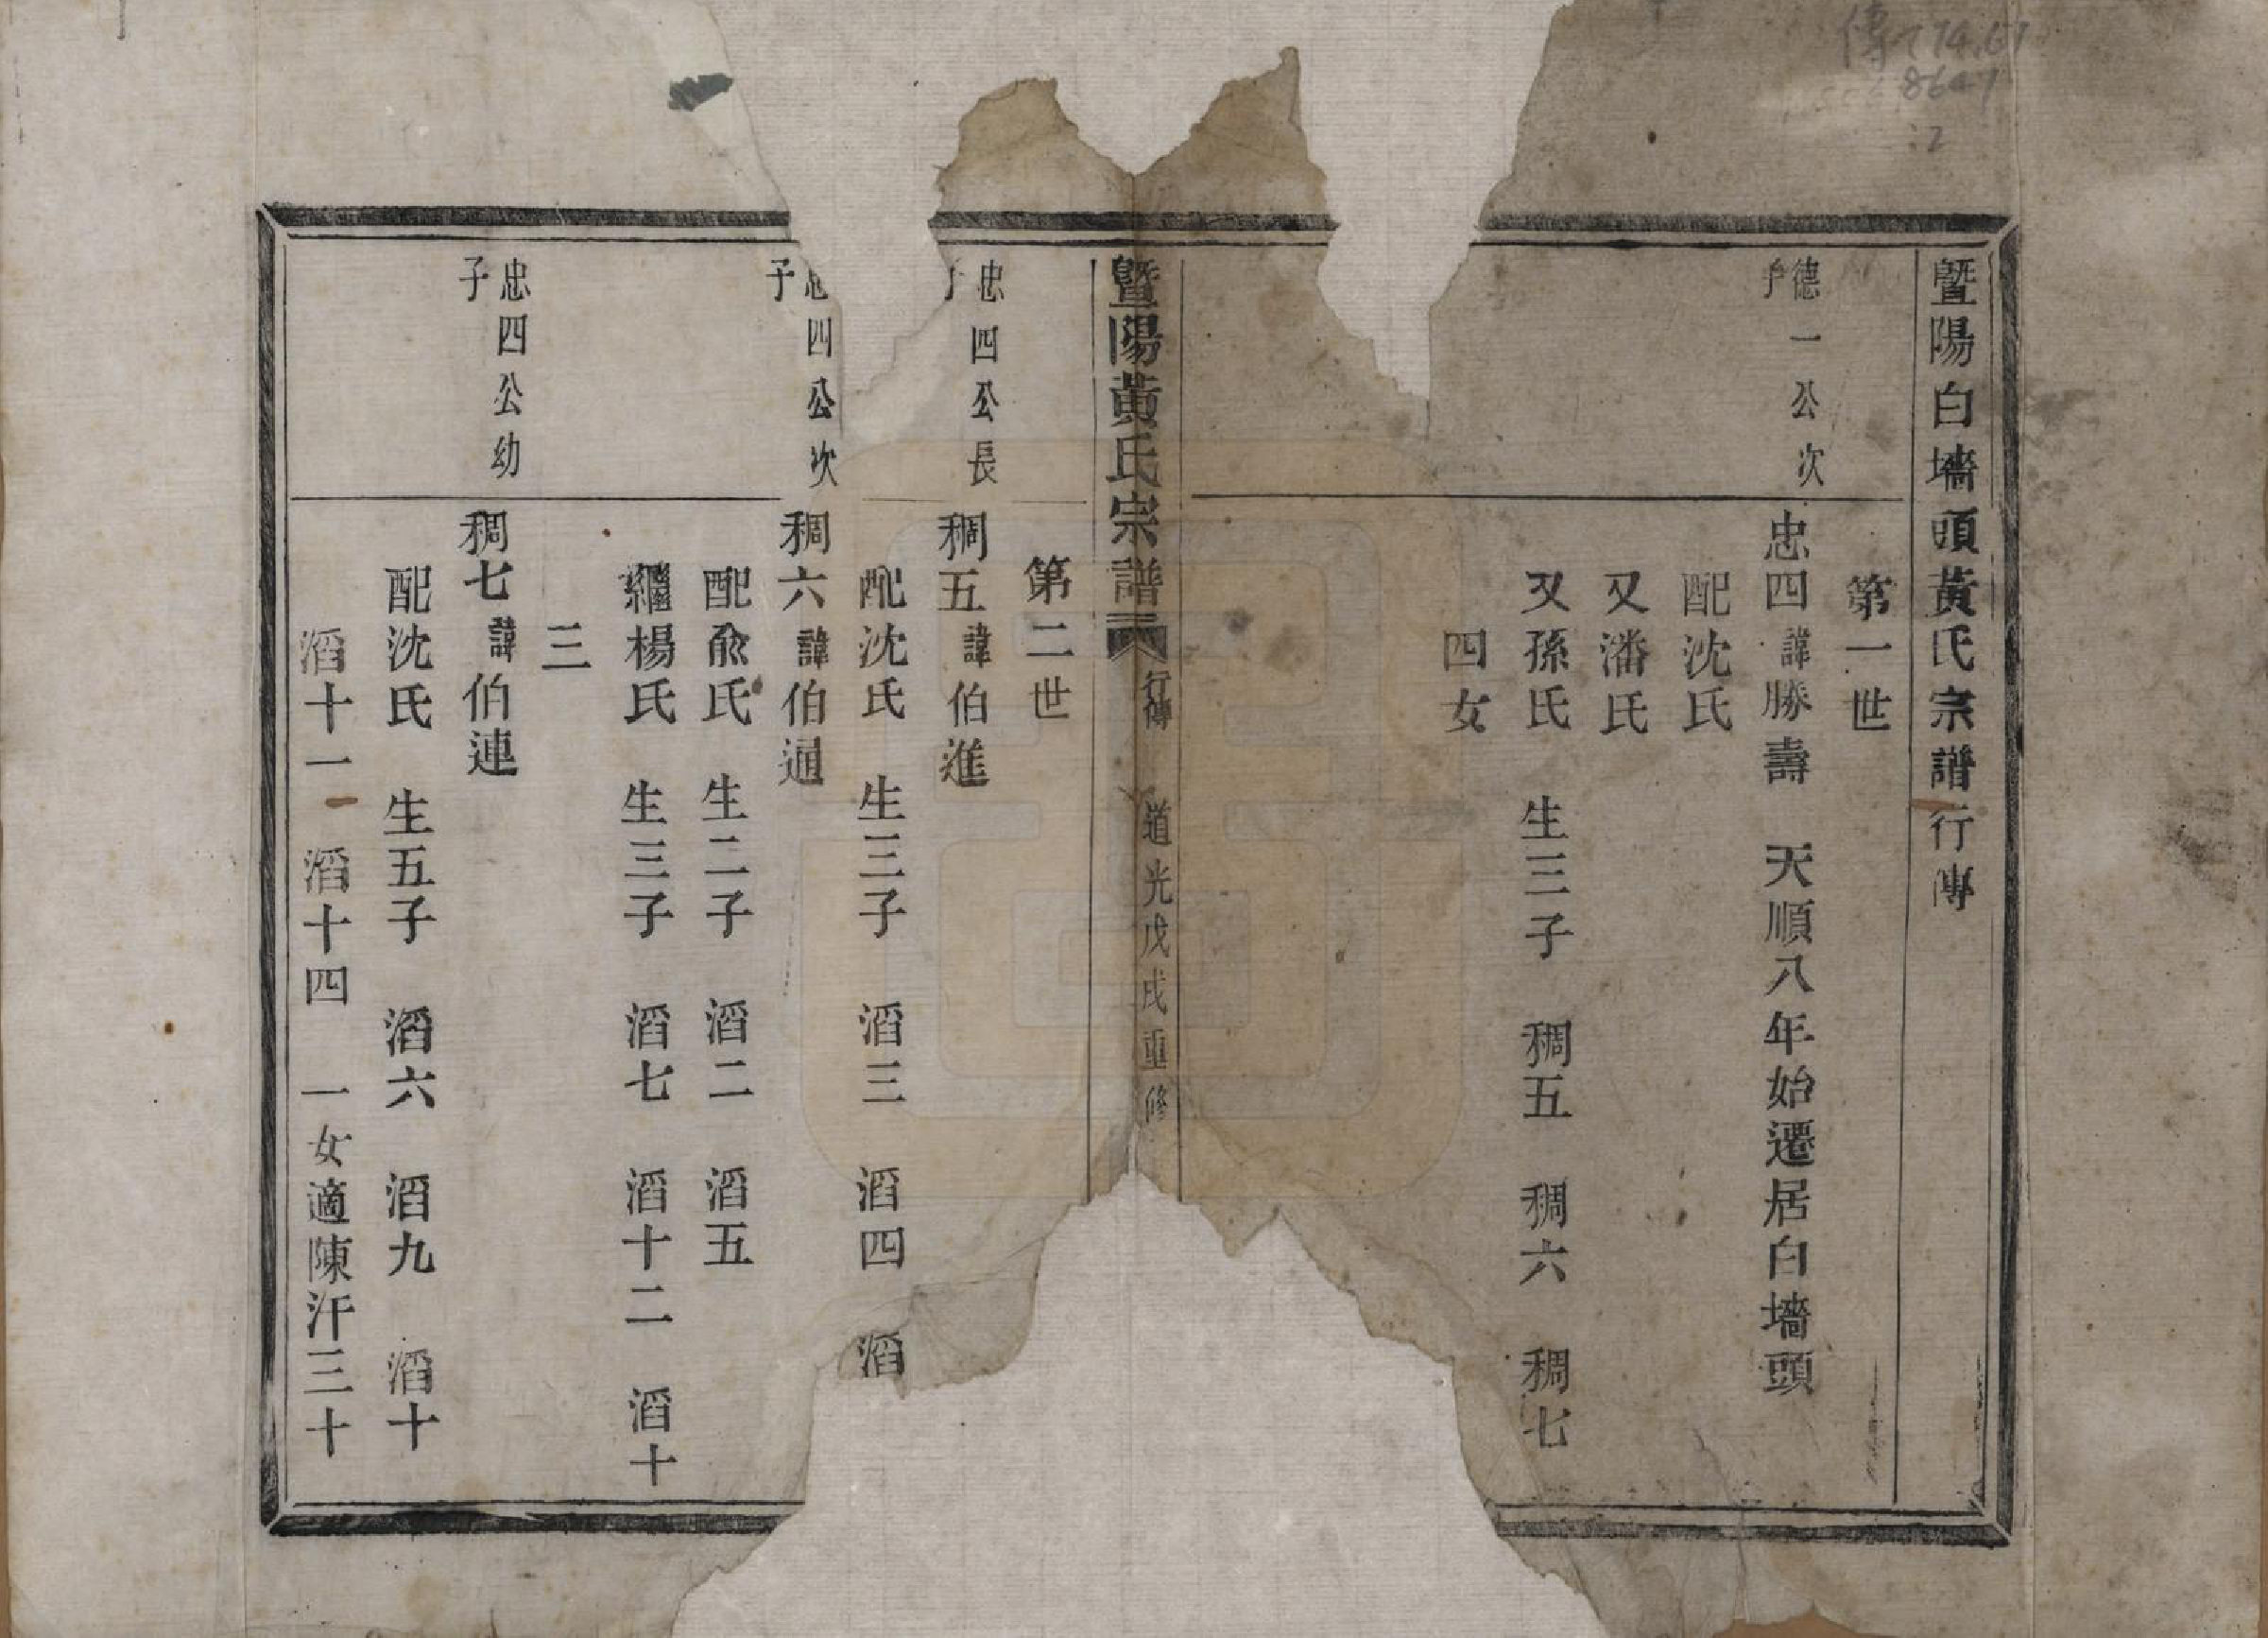 傳774.67
8647
:2
暨陽白墻頭黃氏宗譜行傳
第一世
德一公次子
忠四諱勝壽 天順八年始遷居白墻頭
配沈氏
又潘氏
又孫氏 生三子 稠五 稠六 稠七
四女
暨陽黃氏宗譜 行傳 道光戊戌重修
第二世
忠四公長子
稠五諱伯進
配沈氏 生三子 滔三 滔四 滔
忠四公次子
稠六諱伯通
配兪氏 生二子 滔二 滔五
繼楊氏 生三子 滔七 滔十二 滔十
三
忠四公幼子
稠七諱伯連
配沈氏 生五子 滔六 滔九 滔十
滔十一 滔十四 一女適陳汗三十